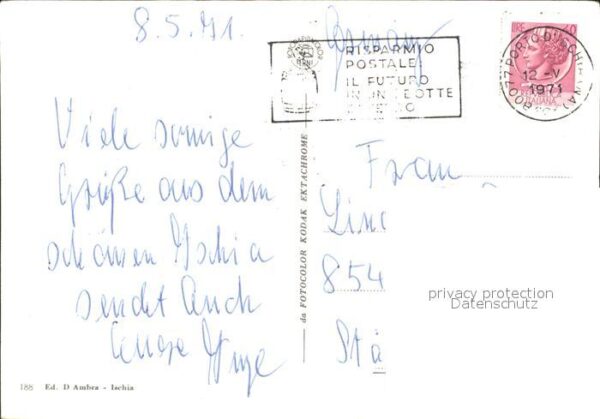 8.5.71.
Germany
RISPARMIO
POSTALE
IL FUTURO
IN UN
LIRE
80077 PORTO D'ISCHIA (NA)
12-V
1971
ITALIANA
Viele sonnige
Grüße aus dem
schönen Ischia
sendet Euch
Eure Inge
da FOTOCOLOR KODAK EKTACHROME
Frau
Lin
854
Stä
privacy protection
Datenschutz
188 Ed. D Ambra - Ischia